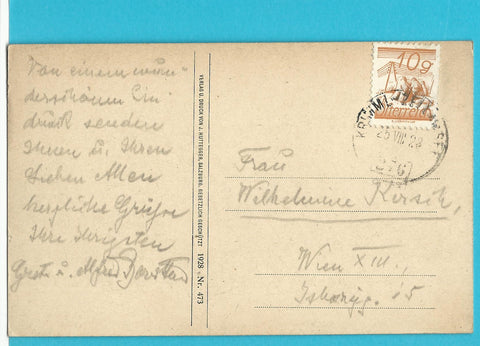 Von einem wun-
derschönen Ein-
druck senden
Ihnen u. Ihren
Lieben Allen
herzliche Grüße
Ihre
Grete u. Alfred
VERLAG U. DRUCK VON J. HUTTEGGER, SALZBURG. GESETZLICH GESCHÜTZT 1928 Nr. 473
10g
Österreich
25 VIII 28
Frau
Wilhelmine
Wien XIII.,
15